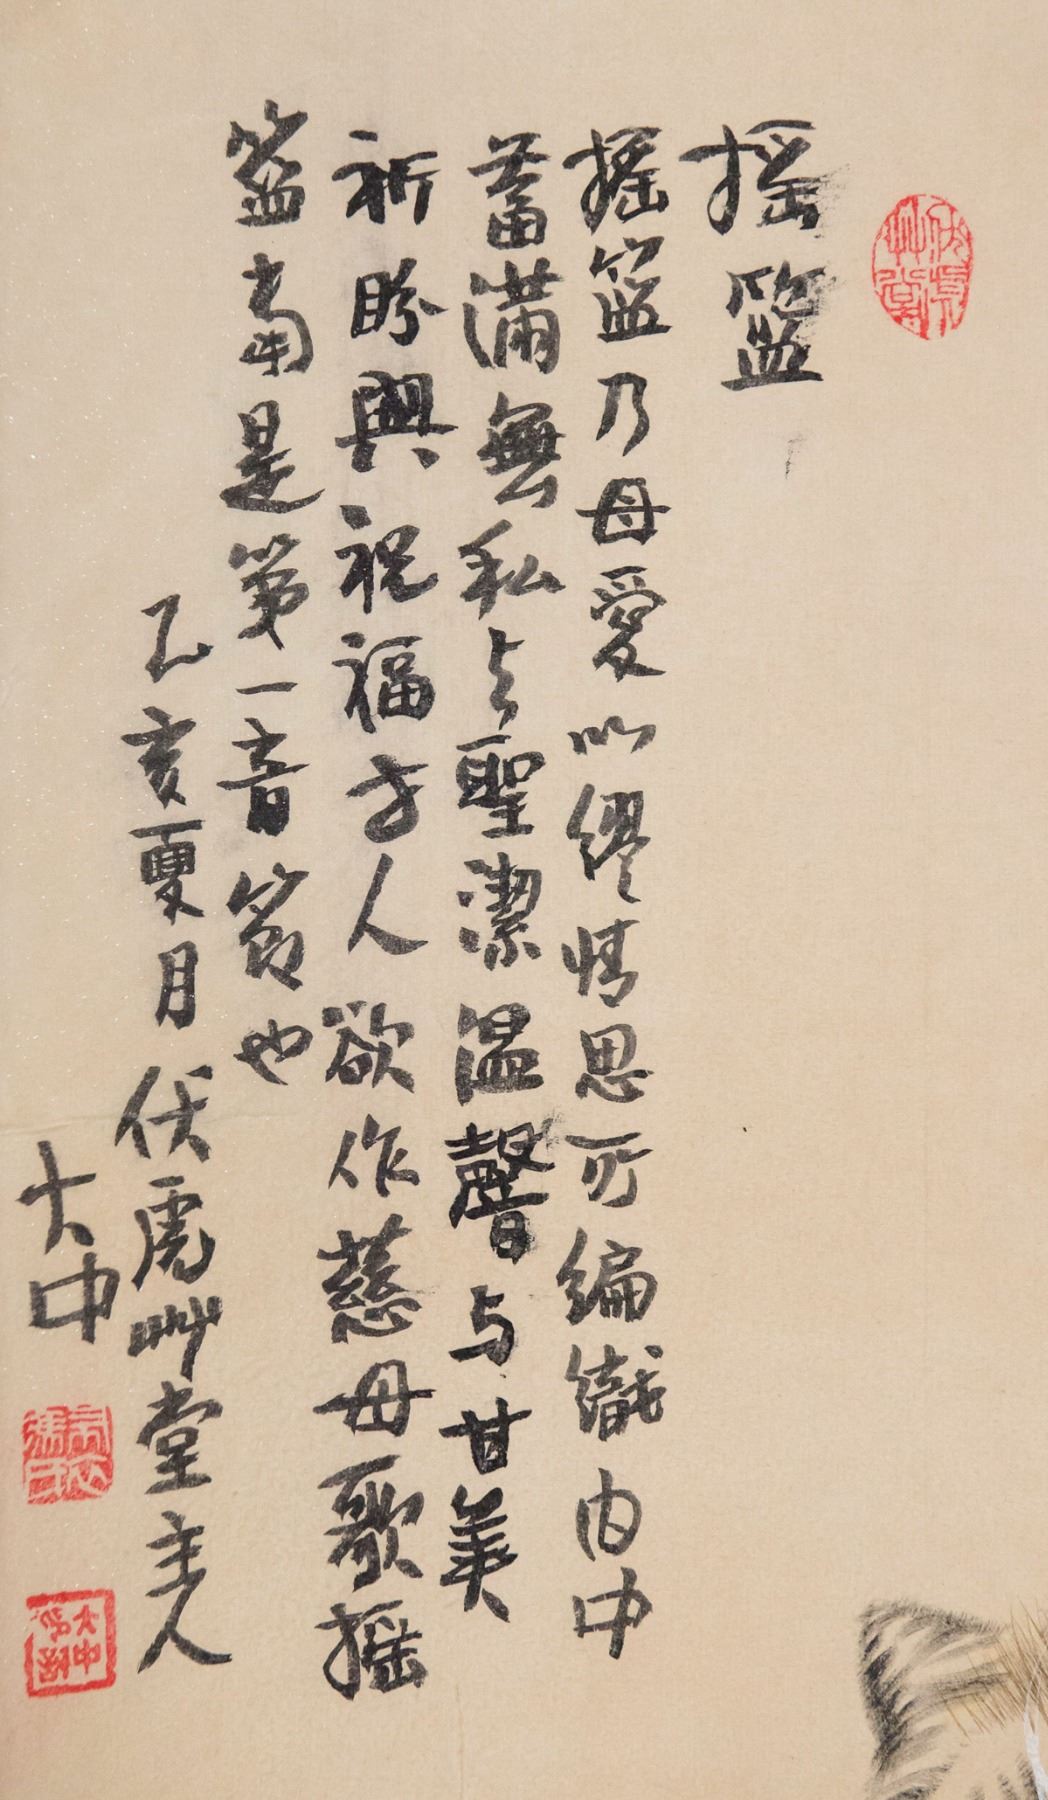 搖籃
搖籃乃母愛以縷縷情思所編織內中
蓄滿無私与聖潔溫馨与甘美
祈盼與祝福子人欲作慈母歌搖
籃當是第一音節也
乙亥夏月伏虎艸堂主人
大中
伏虎草堂
大中